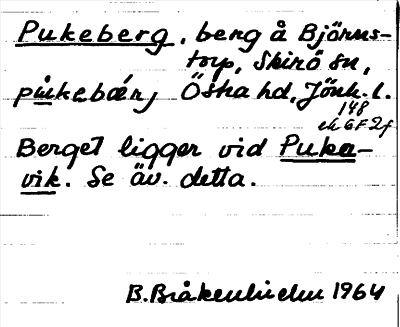 Pukeberg, berg å Björns-
torp, Skirö sn,
pu̇kabǽr, Östra hd, Jönk. l.
148
ek 6F2f
Berget ligger vid Puka-
vik. Se äv. detta.
B. Bråkenhielm 1964